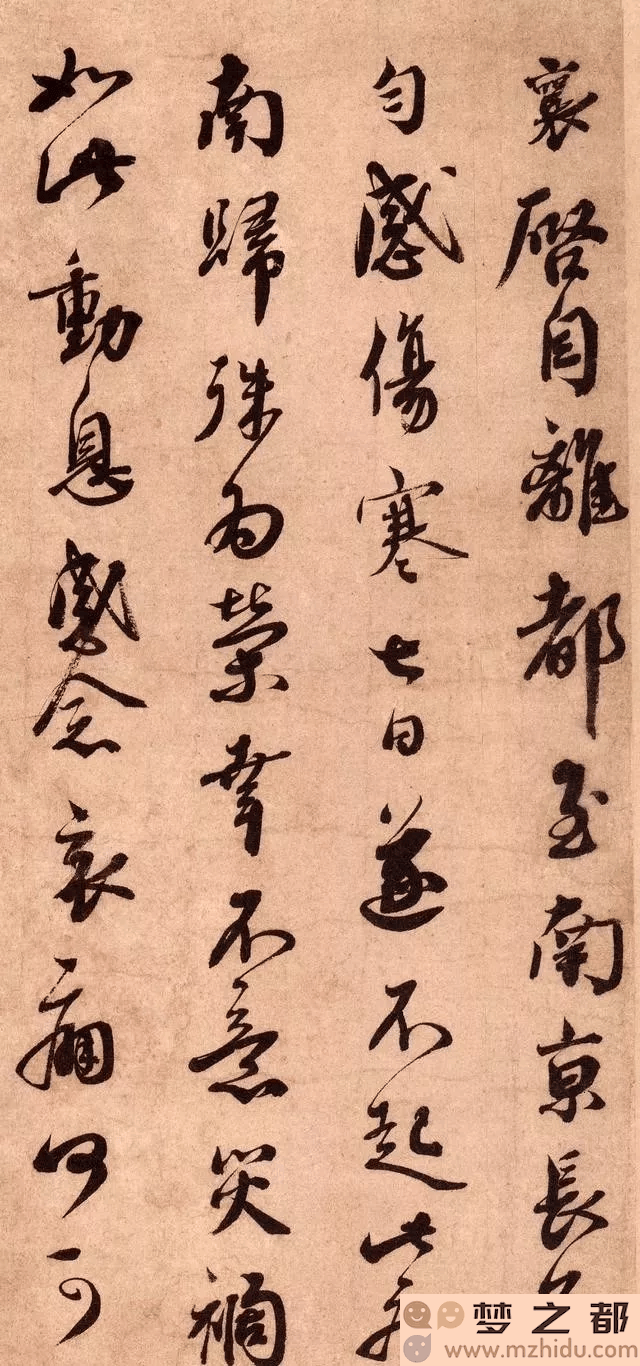 襄啓自離都至南京長
匀感傷寒七日遂不起此
南歸殊为榮幸不意災禍
如此動息感念哀痛何可
梦之都
www.mzhidu.com